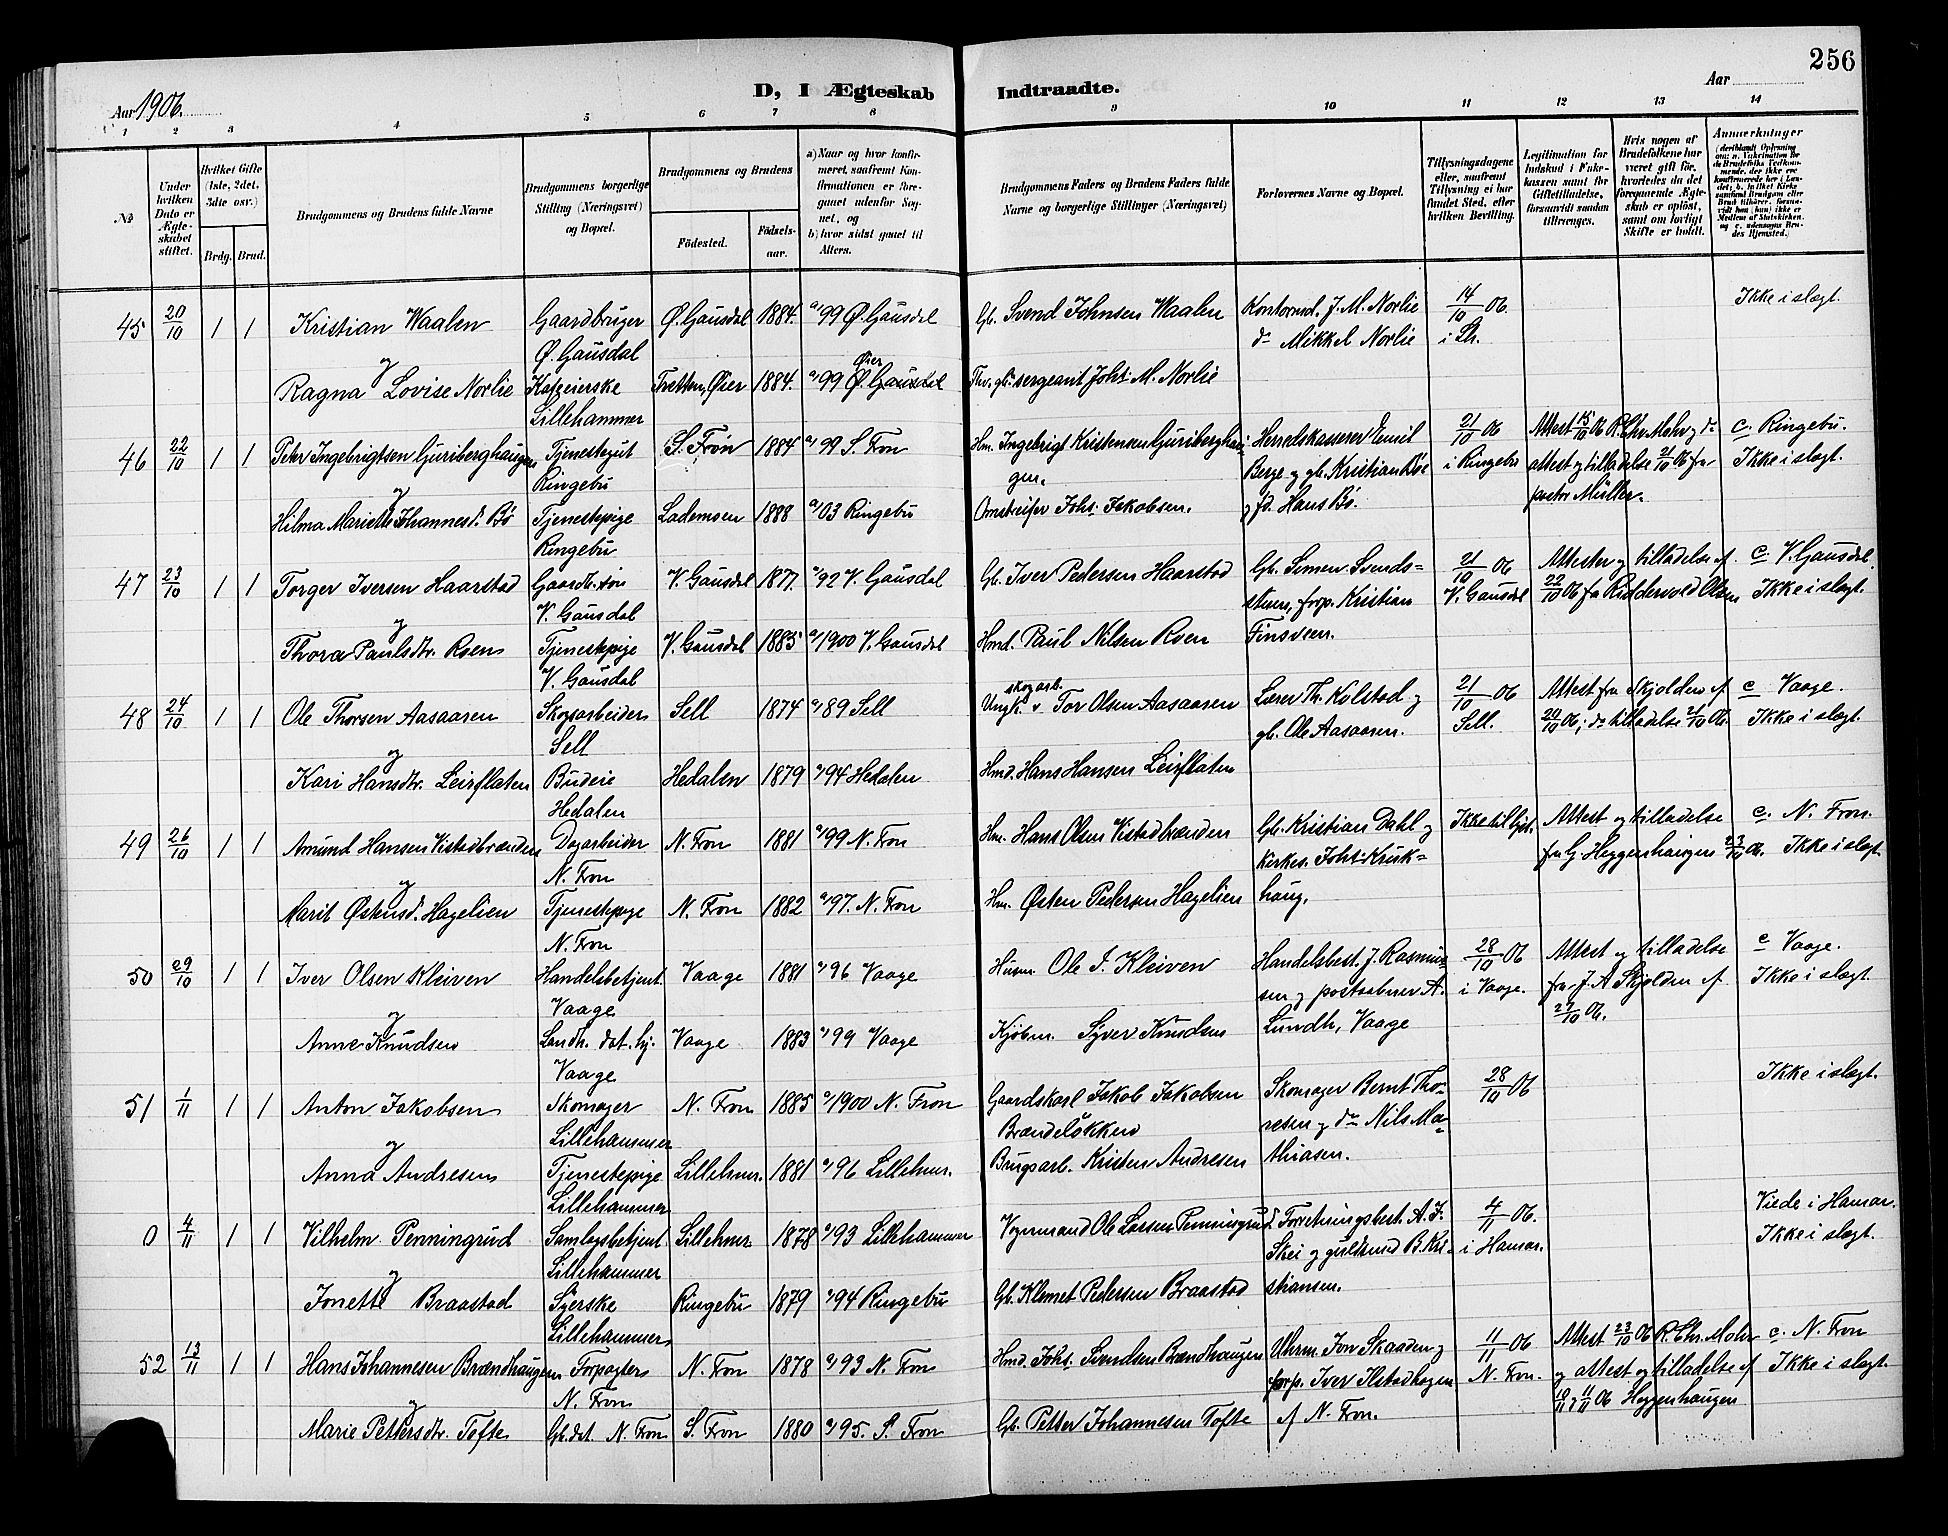 256
Aar 1906.
D, I Ægteskab Indtraadte.
Aar
1 2 3 4 5 6 7 8 9 10 11 12 13 14
No
Under hvilken Dato er Ægteskabet stiftet.
Hvilket Gifte (1ste, 2det, 3die osv.)
Brdg. Brud.
Brudgommens og Brudens fulde Navne
Brudgommens borgerlige Stilling (Næringsvei) og Bopæl.
Brudgommens og Brudens
Fødested.
Fødselsaar.
a) Naar og hvor konfirmeret, saafremt Konfirmationen er foregaaet udenfor Sognet, og
b) hvor sidst gaaet til Alters.
Brudgommens Faders og Brudens Faders fulde Navne og borgerlige Stillinger (Næringsvei)
Forlovernes Navne og Bopæl.
Tillysningsdagene eller, saafremt Tillysning ei har fundet Sted, efter hvilken Bevilling.
Legitimation for Indskud i Enkekassen samt for Giftetilladelse, forsaavidt saadan tiltrænges.
Hvis nogen af Brudefolkene har været gift før, hvorledes da det foregaaende Ægteskab er opløst, samt om lovligt Skifte er holdt.
Anmærkninger
45 20/10 1 1 Kristian Waalen Gaardbruger Ø. Gausdal Ø. Gausdal 1884. a/ 99 Ø. Gausdal Gb. Svend Johnsen Waalen Kontormd. J. M. Norlie do Mikkel Norlie 14/10 06. i Lh. Ikke i slægt.
og
Ragna Lovise Norlie Lillehammer Tretten, Øier 1884. a/ 99 Øier sergeant Johs. M. Norlie
46 22/10 1 1 Peter Ingebrigtsen Guriberghaugen Tjenestegut Ringebu S. Fron 1884 a/ 99 S. Fron Hm. Ingebrigt Kristensen Guriberghaugen. Herredskasserer Emil Berge og gb. Kristian Bøe og fd. Hans Bö. 21/10 06 i Ringebu Attest 15/10 06 R. Chr. Mohr og do attest og tilladelse 21/10 06 fra pastor Müller. c. Ringebu. Ikke i slægt.
og
Hilma Mariette Johannesd. Bö Tjenestepige Ringebu Lademoen 1888 a/ 03 Ringebu Omstreifer Johs. Jakobsen.
47 23/10 1 1 Torger Iversen Haarstad Gaardb. søn V. Gausdal V. Gausdal 1877. a/ 92 V. Gausdal Gb. Iver Pedersen Haarstad Gb. Simen Svendsstuen, forp. Kristian Finsveen. 21/10 06 V. Gausdal Attester og tilladelse af 22/10 06 fra Riddervold Olsen c. V. Gausdal, Ikke i slægt.
og
Thora Paulsdtr. Roen Tjenestepige V. Gausdal V. Gausdal 1885 a/ 1900 V. Gausdal Hmd. Paul Nilsen Roen
48 24/10 1 1 Ole Thorsen Aasaaren Skogarbeider Sell Sell 1874 a/ 89 Sell Ungk. v skogarb. Tor Olsen Aasaaren Lærer Th. Kolstad og gb. Ole Aasaaren. 21/10 06 Sell. Attest fra Skjolden af 20/10 06; do tilladelse 21/10 06. c Vaage. Ikke i slægt.
og
Kari Hansdtr. Leirflaten Budeie Hedalen Hedalen 1879 a/ 94 Hedalen Hmd. Hans Hansen Leirflaten
49 26/10 1 1 Amund Hansen Vistadbrænden Dagarbeider N. Fron N. Fron 1881 a/ 99 N. Fron Hm. Hans Olsen Vistadbrænden Gb. Kristian Dahl og kirkes. Johs. Kruk-haug. Ikke tillyst. Attest og tilladelse fra G. Heggenhaugen 23/10 06. c. N. Fron. Ikke i slægt
og
Marit Østensd. Hagelien Tjenestepige N. Fron N. Fron 1882 a/ 97. N. Fron Hm. Østen Pedersen Hagelien
50 29/10 1 1 Iver Olsen Kleiven Handelsbetjent Vaage Vaage 1881 a/ 96 Vaage Husm. Ole I. Kleiven Handelsbest. J. Rasmussen og postaabner A. Lundh, Vaage 28/10 06 i Vaage. Attest og tilladelse fra J. A. Skjolden af 27/10 06. c Vaage. Ikke i slægt.
og
Anne Knudsen Landh. dat. hj. Vaage Vaage 1883 a/ 99 Vaage Kjöbm. Syver Knudsen
51 1/11 1 1 Anton Jakobsen Skomager Lillehammer N. Fron 1885 a/ 1900 N. Fron Gaardskarl Jakob Jakobsen Brændelökken Skomager Bernt Thoresen og do Nils Mathiasen. 28/10 06 Ikke i slægt.
og
Anna Andresen Tjenestepige Lillehammer Lillehmr. 1881 a/ 96 Lillehmr. Brugsarb. Kristen Andresen
0 4/11 1 1 Vilhelm Penningrud Samlagsbetjent Lillehammer Lillehmr. 1878 a/ 93 Lillehammer Vognmand Ole Larsen Penningrud Forretningsbest. A. J. Skei og guldsmd B. Kristiansen. 4/11 06. i Hamar. Viede i Hamar. Ikke i slægt.
og
Jonette Braastad Syerske Lillehammer Ringebu 1879 a/ 94 Ringebu Gb. Klemet Pedersen Braastad
52 13/11 1 1 Hans Johannesen Brændhaugen Forpagter N. Fron N. Fron 1878 a/ 93 N. Fron Hmd. Johs. Svendsen Brændhaugen Uhrm. Jon Skaaden og forp. Iver Ilstadhagen af N. Fron. 11/11 06 N. Fron. Attest 23/10 06 R. Chr. Mohr og attest og tilladelse af 10/11 og 11/11 06 Heggenhaugen c. N. Fron Ikke i slægt.
og
Marie Pettersdtr. Tofte Gb.dat. N. Fron S. Fron 1880 a/ 95. S. Fron Gb. Petter Johannesen Tofte